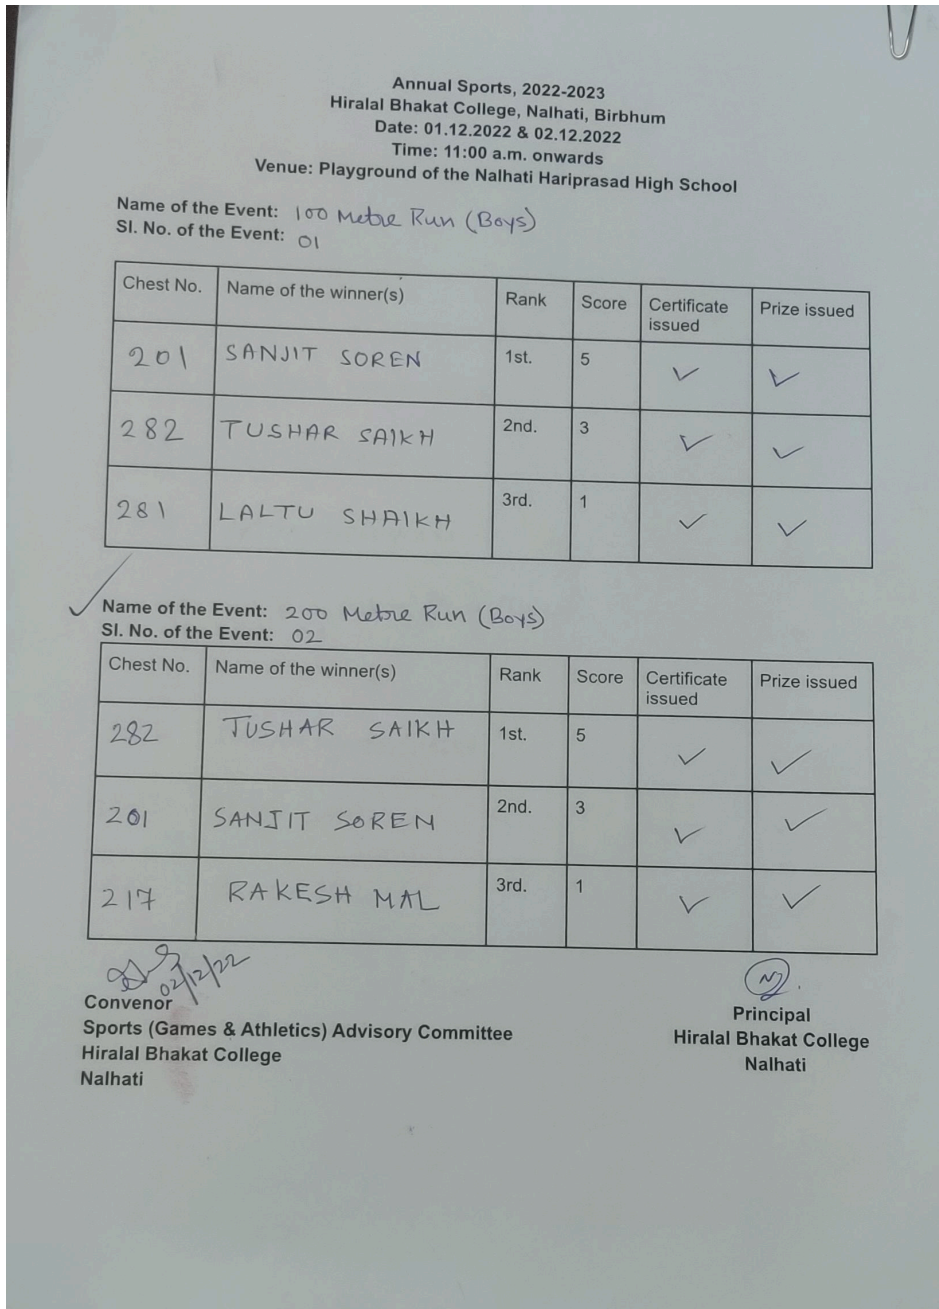 Annual Sports, 2022-2023
Hiralal Bhakat College, Nalhati, Birbhum
Date: 01.12.2022 & 02.12.2022
Time: 11:00 a.m. onwards
Venue: Playground of the Nalhati Hariprasad High School
Name of the Event: 100 Metre Run (Boys)
Sl. No. of the Event: 01
Chest No. Name of the winner(s) Rank Score Certificate issued Prize issued
201 SANJIT SOREN 1st. 5 ✓ ✓
282 TUSHAR SAIKH 2nd. 3 ✓ ✓
281 LALTU SHAIKH 3rd. 1 ✓ ✓
✓ Name of the Event: 200 Metre Run (Boys)
Sl. No. of the Event: 02
Chest No. Name of the winner(s) Rank Score Certificate issued Prize issued
282 TUSHAR SAIKH 1st. 5 ✓ ✓
201 SANJIT SOREN 2nd. 3 ✓ ✓
217 RAKESH MAL 3rd. 1 ✓ ✓
02/12/22
Convenor
Sports (Games & Athletics) Advisory Committee
Hiralal Bhakat College
Nalhati
Principal
Hiralal Bhakat College
Nalhati